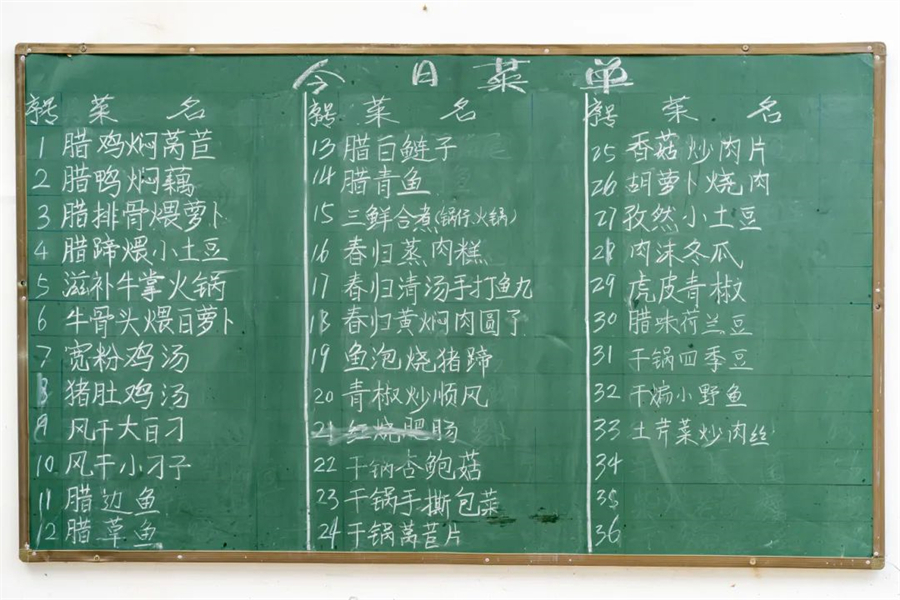 今日菜单
序号 菜名
1 腊鸡焖莴苣
2 腊鸭焖藕
3 腊排骨煨萝卜
4 腊蹄煨小土豆
5 滋补牛掌火锅
6 牛骨头煨白萝卜
7 宽粉鸡汤
8 猪肚鸡汤
9 风干大白刁
10 风干小刁子
11 腊边鱼
12 腊草鱼
序号 菜名
13 腊白鲢子
14 腊青鱼
15 三鲜合煮(锅仔火锅)
16 春归蒸肉糕
17 春归清汤手打鱼丸
18 春归黄焖肉圆子
19 鱼泡烧猪蹄
20 青椒炒顺风
21 红烧肥肠
22 干锅杏鲍菇
23 干锅手撕包菜
24 干锅莴苣片
序号 菜名
25 香菇炒肉片
26 胡萝卜烧肉
27 孜然小土豆
28 肉沫冬瓜
29 虎皮青椒
30 腊味荷兰豆
31 干锅四季豆
32 干煸小野鱼
33 土芹菜炒肉丝
34
35
36